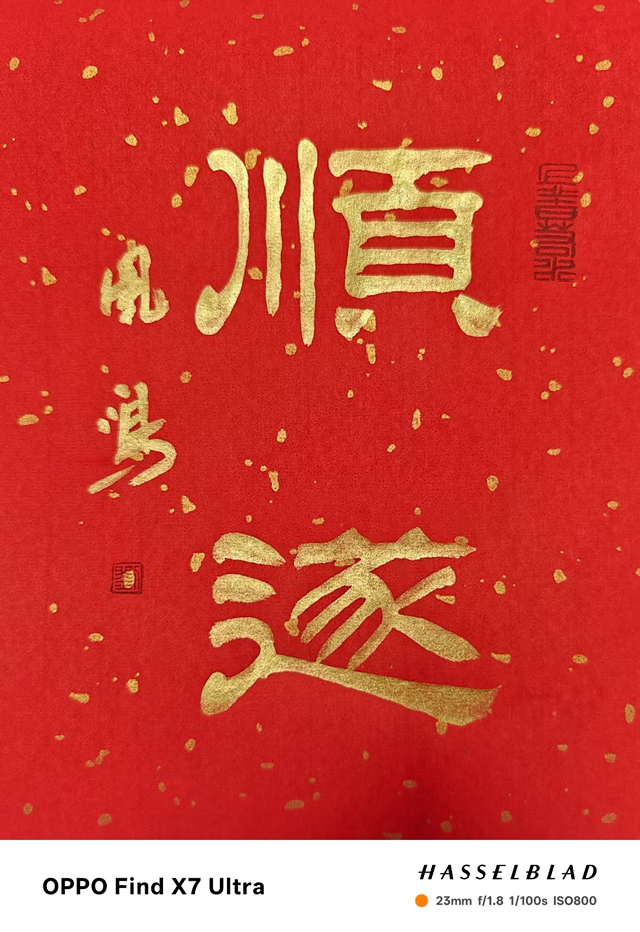 順遂
風鳴
OPPO Find X7 Ultra
HASSELBLAD
23mm f/1.8 1/100s ISO800